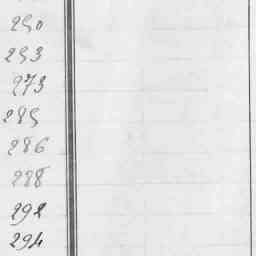 250
253
273
285
286
288
292
294